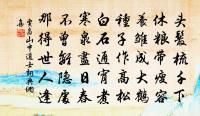 头髮梳千下
休粮带瘦容
养雏成大鹤
种子作高松
白石通宵煮
寒泉尽日舂
不曾解隐处
那得世人逢
贾岛山中道士